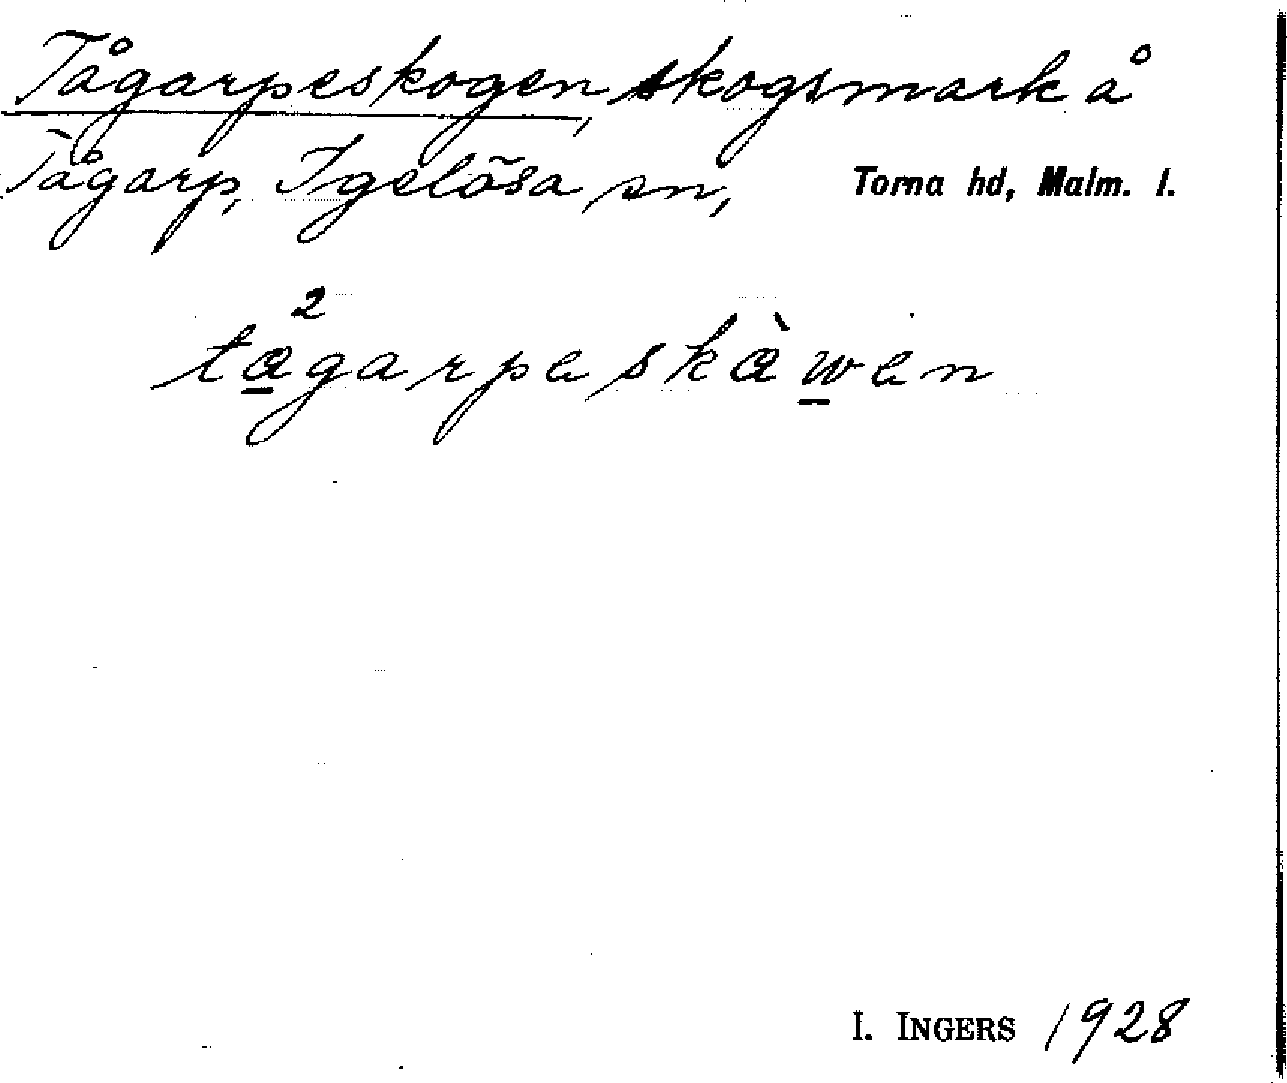 Tågarpeskogen, skogsmark å
Tågarp, Igelösa sn, Torna hd, Malm. l.
tα̲²garpaskὰw̲an
I. INGERS 1928